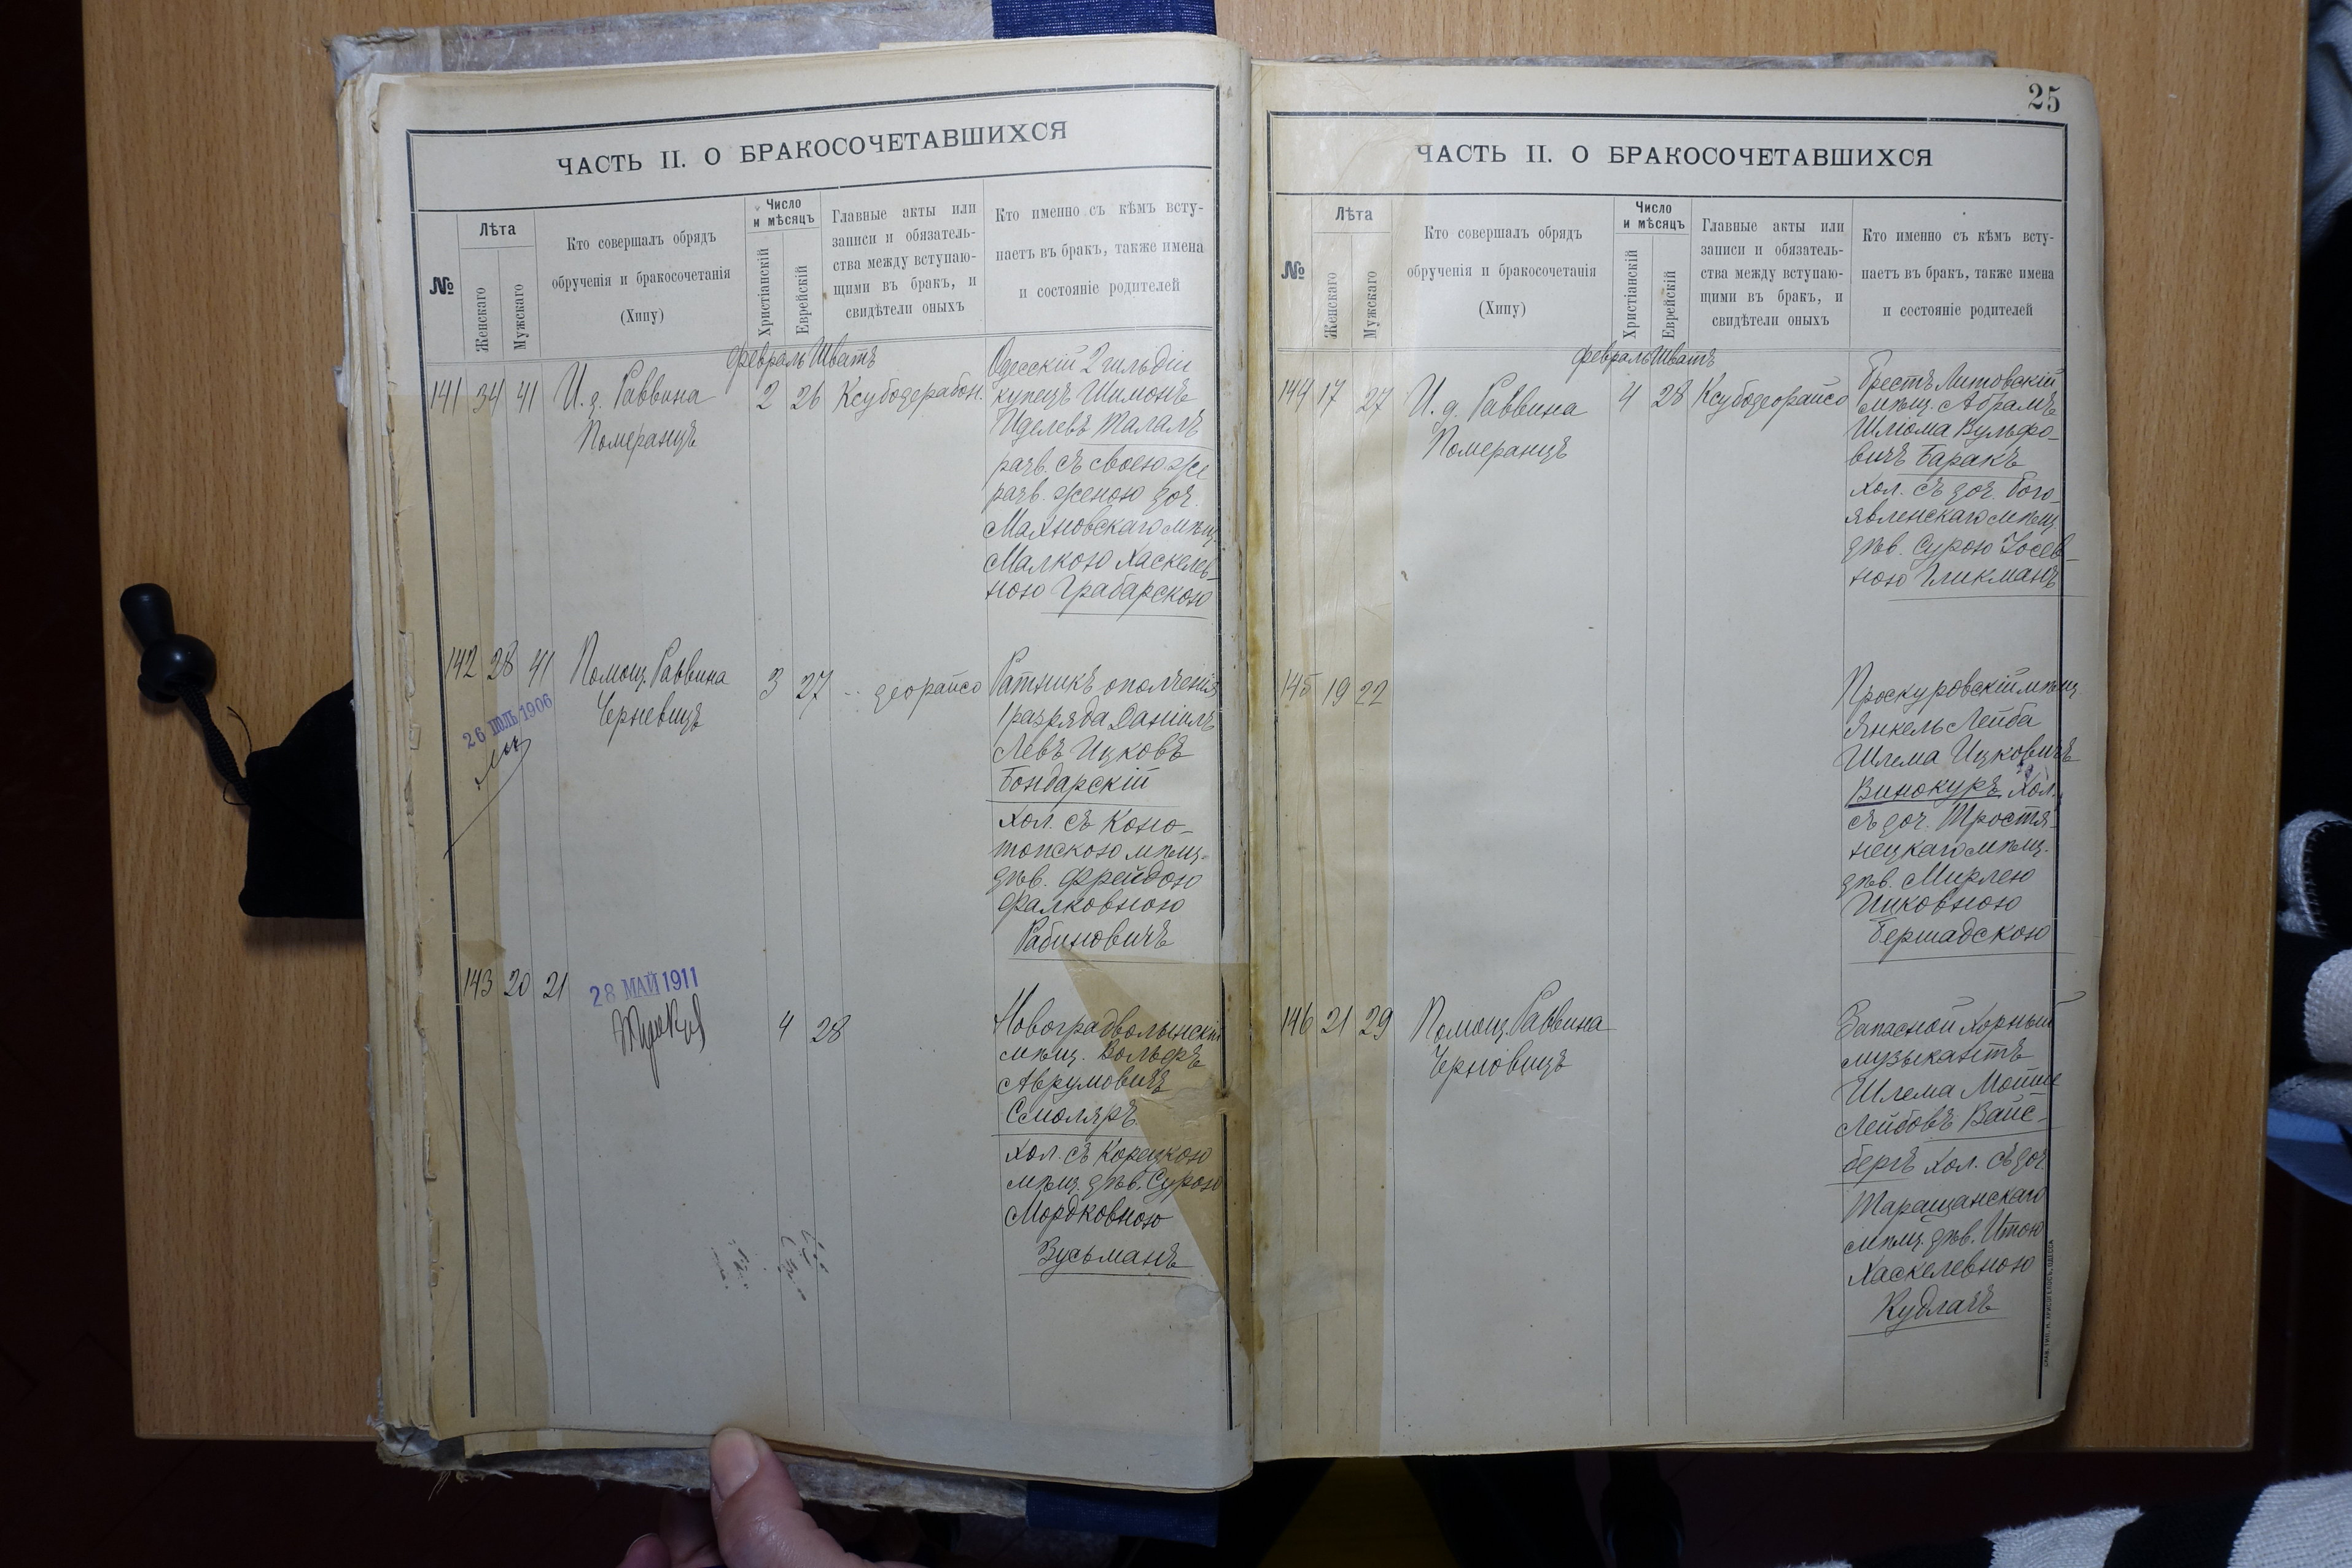 ЧАСТЬ II. О БРАКОСОЧЕТАВШИХСЯ
№
Лѣта
Женскаго
Мужскаго
Кто совершалъ обрядъ
обрученія и бракосочетанія
(Хипу)
Число
и мѣсяцъ
Христіанскій
Еврейскій
Главные акты или
записи и обязатель-
ства между вступаю-
щими въ бракъ, и
свидѣтели оныхъ
Кто именно съ кѣмъ всту-
паетъ въ бракъ, также имена
и состояніе родителей
февраль Шватъ
141 34 41 И. д. Раввина 2 26 Ксубодерабон.
Померанцъ
Одесскій 2 гильдіи
купецъ Шимонъ
Иделевъ Талалъ
разв. съ своею же
разв. женою доч.
Махновскаго мѣщ.
Малкою Хаскелев-
ною Грабарскою
142 28 41 Помощ. Раввина 3 27 деорайсо
Черневицъ
26 ІЮЛЬ 1906
Ратникъ ополченія
1 разряда Даніилъ
Левъ Ицковъ
Бондарскій
хол. съ Коно-
топскою мѣщ.
дѣв. Фрейдою
Фалковною
Рабиновичъ
143 20 21 4 28
28 МАЙ 1911
Новоградволынскій
мѣщ. Вольфъ
Аврумовичъ
Смоляръ
хол. съ Корецкою
мѣщ. дѣв. Сурою
Мордковною
Зусьманъ
25
ЧАСТЬ II. О БРАКОСОЧЕТАВШИХСЯ
№
Лѣта
Женскаго
Мужскаго
Кто совершалъ обрядъ
обрученія и бракосочетанія
(Хипу)
Число
и мѣсяцъ
Христіанскій
Еврейскій
Главные акты или
записи и обязатель-
ства между вступаю-
щими въ бракъ, и
свидѣтели оныхъ
Кто именно съ кѣмъ всту-
паетъ въ бракъ, также имена
и состояніе родителей
февраль Шватъ
144 17 27 И. д. Раввина 4 28 Ксубодеорайсо
Померанцъ
Брестъ Литовскій
мѣщ. Абрамъ
Шлиома Вульфо-
вичъ Баракъ
хол. съ доч. Бого-
явленскаго мѣщ.
дѣв. Сурою Іосев-
ною Гликманъ
145 19 22
Проскуровскій мѣщ.
Янкель Лейба
Шлема Ицковичъ
Винокуръ хол.
съ доч. Тростя-
нецкаго мѣщ.
дѣв. Мирлею
Ициковною
Бершадскою
146 21 29 Помощ. Раввина
Черновицъ
Запасной хорный
музыкантъ
Шлема Мойше
Лейбовъ Вайс-
бергъ хол. съ доч.
Таращанскаго
мѣщ. дѣв. Итою
Хаскелевною
Кудлачъ